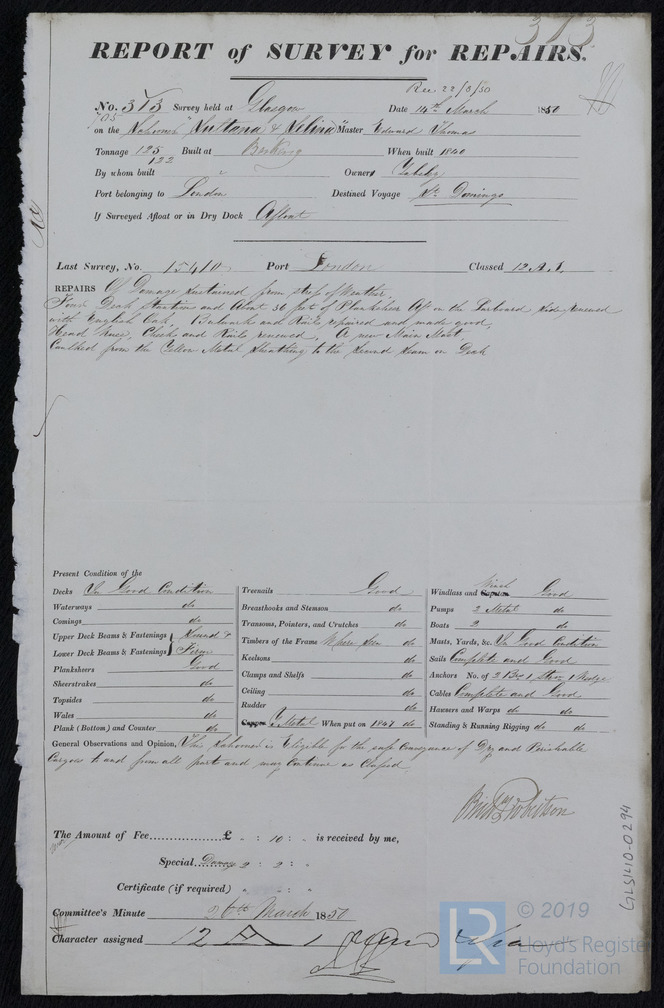 313
REPORT of SURVEY for REPAIRS.
Rec 22/3/50
No. 313 Survey held at Glasgow Date 14th March 1850
705
on the Schooner "Sultana & Selina" Master Edward Thomas
Tonnage 125 Built at Barking When built 1840
122
By whom built Owners
Port belonging to London Destined Voyage St Domingo
If Surveyed Afloat or in Dry Dock Afloat
Last Survey, No. 15410 Port London Classed 12 A.1.
REPAIRS Of Damage sustained from stress of Weather.
Four Deak Stantions and about 30 feet of Planksheer Aft on the Larboard side renewed
with English Oak, Bulwark and Rails repaired and made good,
Head Knee, Cheeks and Rails renewed, A new Main Mast.
Caulked from the Yellow Metal Sheathing to the second seam on Deak
Present Condition of the
Decks In Good Condition
Waterways do
Comings do
Upper Deck Beams & Fastenings } Sound &
Lower Deck Beams & Fastenings } Firm
Planksheers Good
Sheerstrakes do
Topsides do
Wales do
Plank (Bottom) and Counter do
Treenails Good
Breasthooks and Stemson do
Transoms, Pointers, and Crutches do
Timbers of the Frame Where seen do
Keelsons do
Clamps and Shelfs do
Ceiling do
Rudder do
Copper Y Metal When put on 1847 do
Winch
Windlass and Capstan Good
Pumps 2 Metal do
Boats 2 do
Masts, Yards, &c. In Good Condition
Sails Complete and Good
Anchors No. of 2 Brs 1 Strm 1 Kedge
Cables Complete and Good
Hawsers and Warps do do
Standing & Running Rigging do do
General Observations and Opinion, This Schooner is Eligible for the safe Conveyance of Dry and Perishable
Cargoes to and from all parts and may Continue as Classed
Robertson
The Amount of Fee............... £ " : 10 : " is received by me,
Special Damage 2 : 2 : "
Certificate (if required) " : " : "
Committee's Minute 26th March 1850
Character assigned 12 A 1
GLS1410-0294
LR © 2019
Lloyd's Register
Foundation